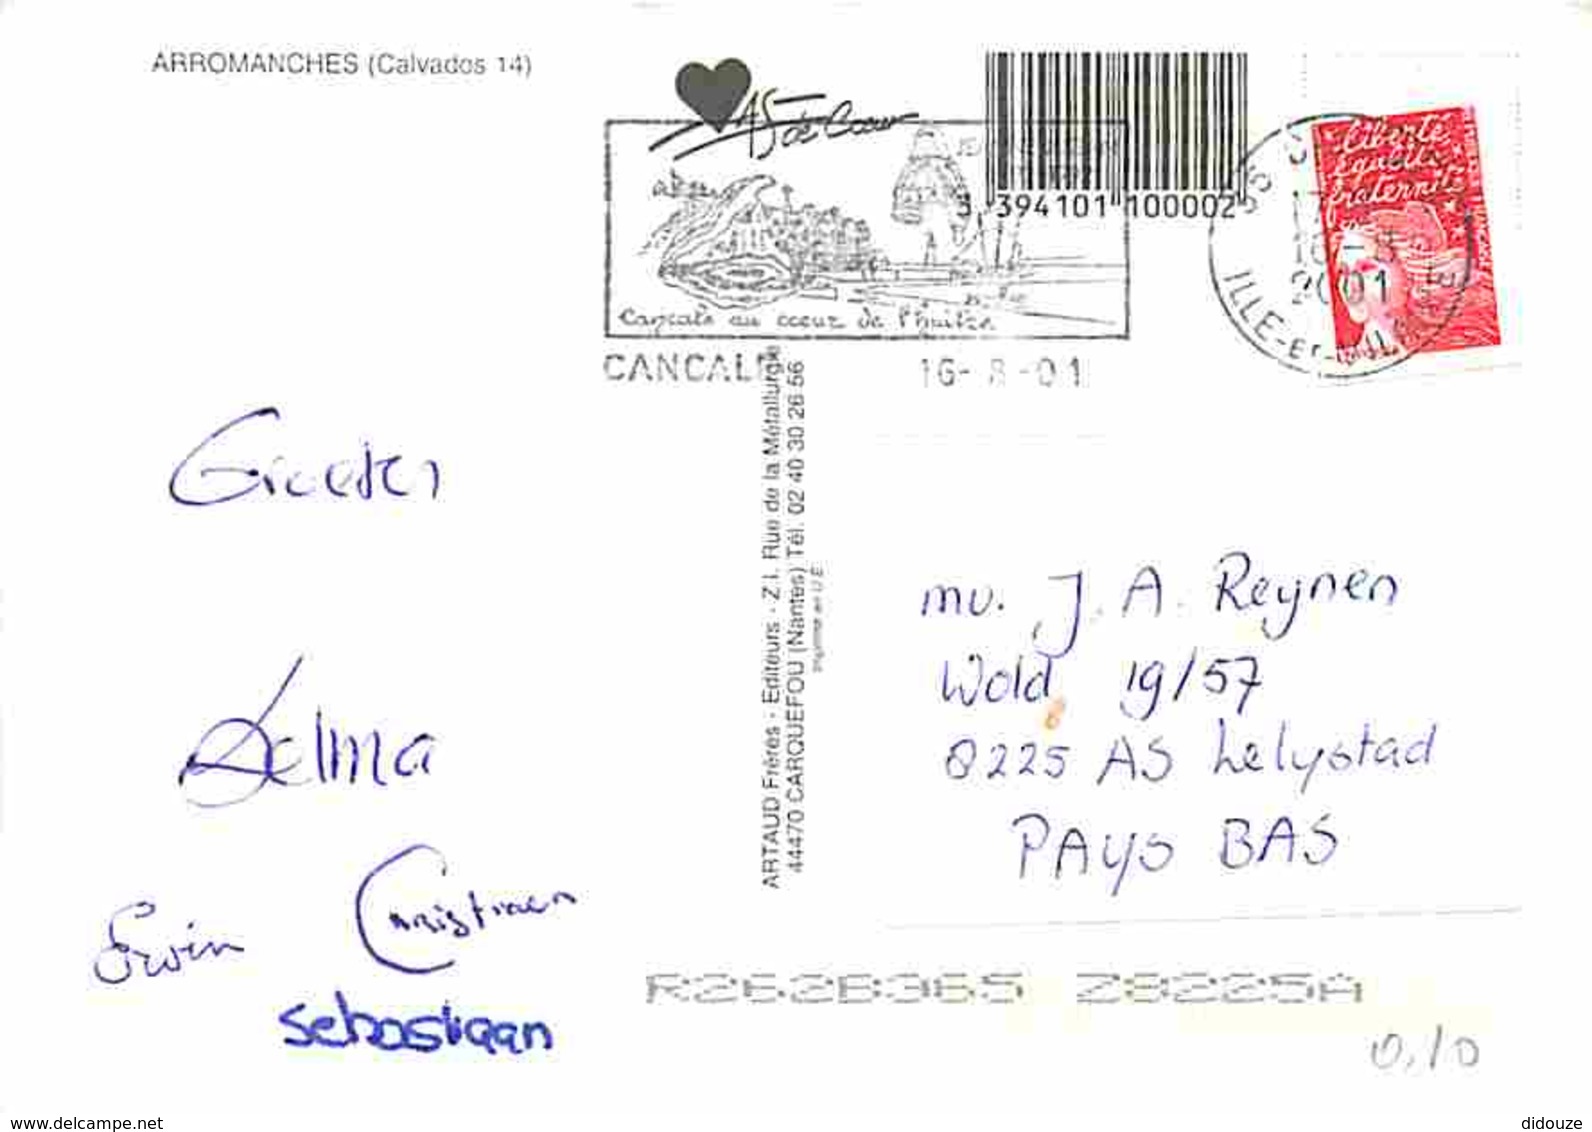 ARROMANCHES (Calvados 14)
AS de Coeur
3 394101 100002
Liberté
égalité
fraternité
Cancale au coeur de l'huitre
CANCALE
16-8-01
2001
ILLE-ET-VILAINE
ARTAUD Frères - Editeurs - Z.I. Rue de la Métallurgie
44470 CARQUEFOU (Nantes) Tél. 02 40 30 26 56
Imprimé en U.E.
Groeten
Selma
Erwin Christiaen
Sebastiaan
mv. J. A. Reynen
Wold 19/57
8225 AS Lelystad
PAYS BAS
R262B365 Z8225A
0,10
www.delcampe.net
didouze